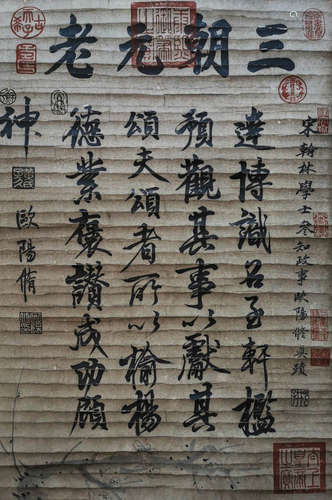 三朝元老
宋翰林學士叅知政事歐陽修真蹟
達博識召至軒檻
預觀其事以獻其
頌夫頌者所以揄揚
德業褒讚成功顧
神
歐陽脩